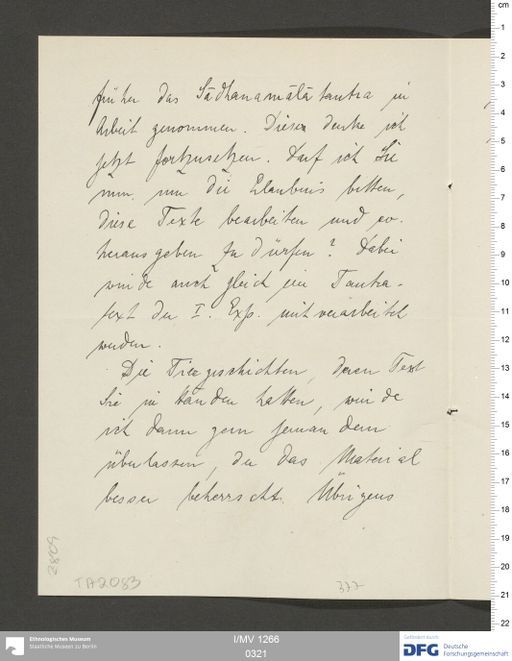 früher das Sādhanamālātantra in
Arbeit genommen. Dieses denke ich
jetzt fortzusetzen. Darf ich Sie
nun um die Erlaubnis bitten,
diese Texte bearbeiten und ev.
herausgeben zu dürfen? Dabei
würde auch gleich ein Tantra-
text der I. Exp. mit verarbeitet
werden.
Die Tiergeschichten, deren Text
Sie in Händen hatten, würde
ich dann gern jemandem
überlassen, der das Material
besser beherrscht. Übrigens
TA2083
377
cm
1
2
3
4
5
6
7
8
9
10
11
12
13
14
15
16
17
18
19
20
21
22
Ethnologisches Museum
Staatliche Museen zu Berlin
I/MV 1266
0321
Gefördert durch
DFG Deutsche
Forschungsgemeinschaft